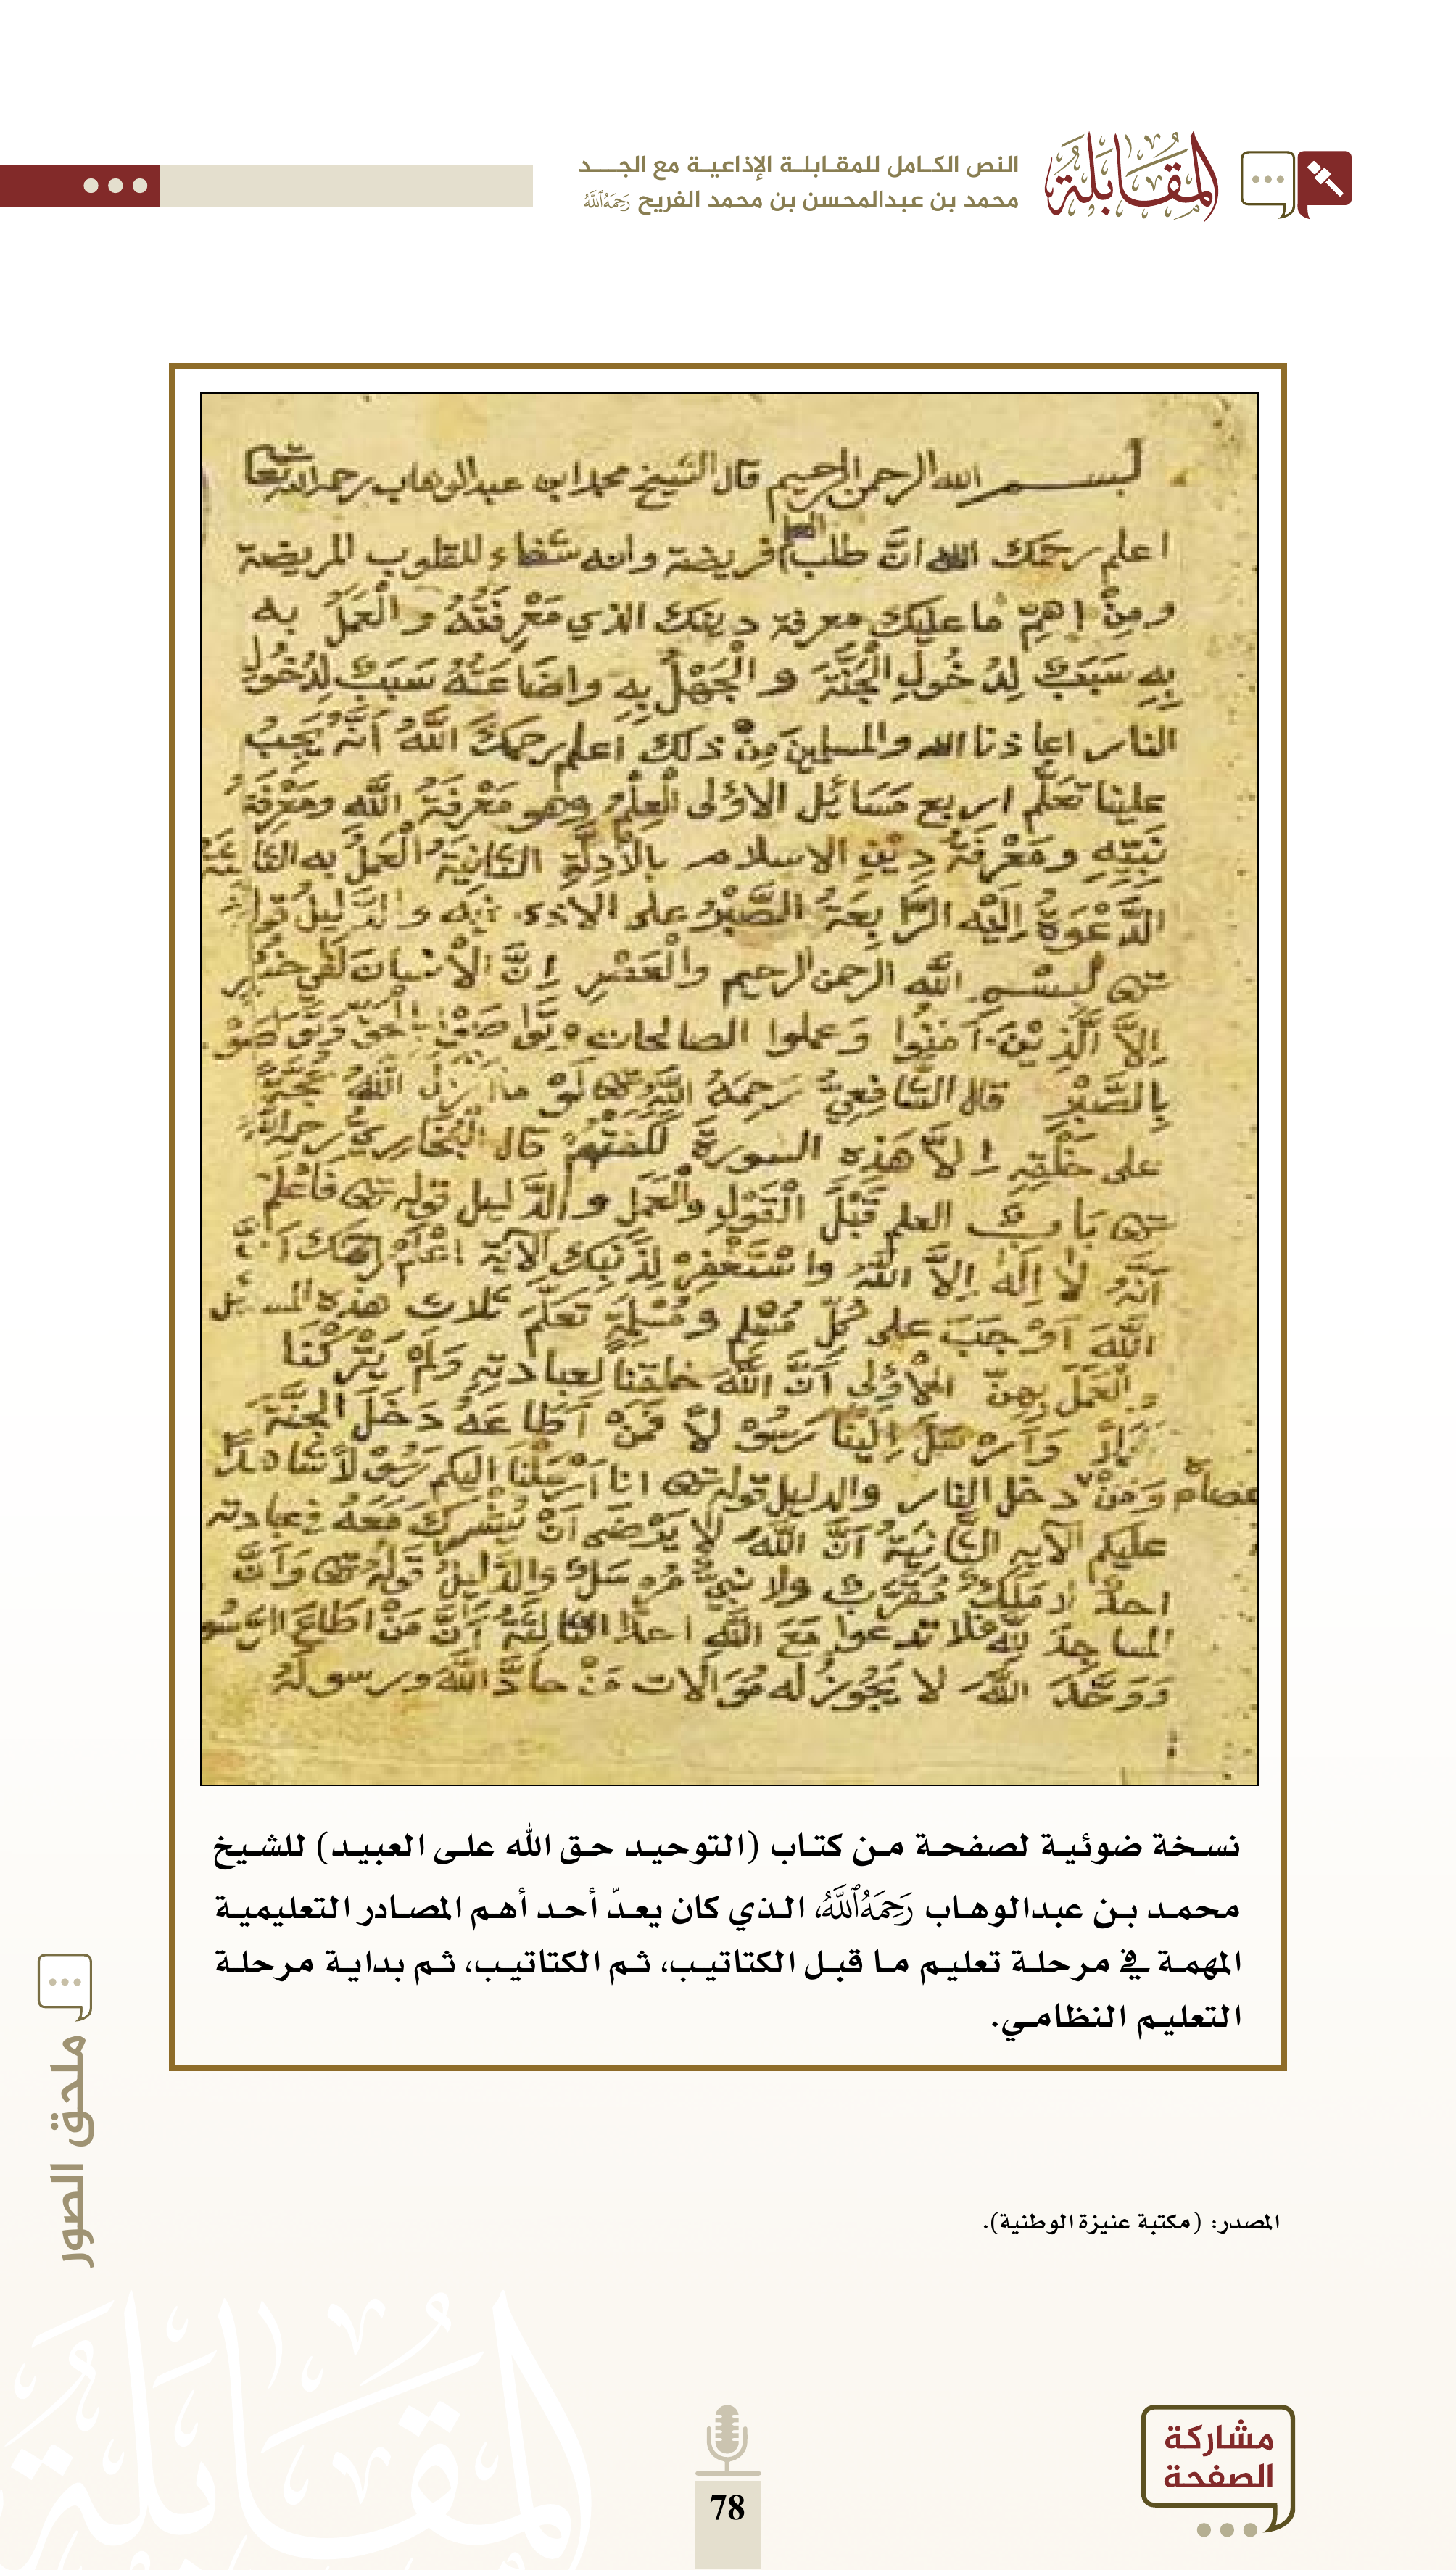 المقابلة
النص الكامل للمقابلة الإذاعية مع الجد
محمد بن عبدالمحسن بن محمد الفريح رَحِمَهُ ٱللَّهُ
بسم الله الرحمن الرحيم قال الشيخ محمد ابن عبد الوهاب رحمه الله تعا
اعلم رحمك الله انَّ طلب العلم فريضة وانه شفاء للقلوب المريضة
ومِنْ اهمِّ ما عليك معرفة دينك الذي مَعْرِفَتُهُ والْعَمَلُ به
بِهِ سَبَبٌ لِدُخُولِ الْجَنَّةَ والْجَهْلُ بِهِ واضَاعَتُهُ سَبَبٌ لِدُخُولِ
النار اعاذنا الله والمسلمينَ مِنْ ذلك اعلم رحمك اللَّهُ اَنَّهُ يَجِبُ
علينا تعَلُّم اربع مَسَائِل الاوْلى الْعِلْمُ وهو مَعْرِفَةُ اللَّه ومَعْرِفَةُ
نَبِيِّهِ ومَعْرِفَةُ دِيْنِ الاسلام بالْاَدِلَّةِ الثانِيَةُ الْعَمَلُ به الثا
الدَّعْوَةُ اِلَيْهِ الرَّابِعَةُ الصَّبْرُ على الاذى فيه والدَّلِيلُ قوله
تعالى بسْم اللَّه الرحمن الرحيم والْعَصْرِ اِنَّ الْاِنْسَانَ لَفِي خُسْرٍ
اِلاَّ الَّذِيْنَ آمَنُوا وَعملوا الصالحات وتَوَاصَوْا بالْحَقِّ وتَوَاصَوْ
بِالصَّبْرِ قال الشَّافِعِيُّ رَحِمَهُ اللَّهُ تعالى لَوْ ما اَنْزَلَ اللَّهُ حُجَّةً
على خَلْقِهِ اِلاَّ هَذِهِ السورةَ لَكَفَتْهُمْ قال الْبُخَارِيُّ رحمه الله
تعالى بَابٌ العلم قَبْلَ الْقَوْلِ والْعَمَلِ والدَّلِيل قوله تعالى فَاعْلَمْ
اَنَّهُ لا اِلَهَ اِلاَّ اللَّهُ واسْتَغْفِرْ لِذَنْبِكَ الآيَة اعْلَمْ رحمك اَنَّ
اللَّهَ اَوْجَبَ على كُلِّ مُسْلِمٍ ومُسْلِمَةٍ تَعَلُّمَ ثلاث هذه المسائل
والْعَمَلَ بِهِنَّ الاُوْلى اَنَّ اللَّهَ خلقنا لعبادتِهِ وَلَمْ يَتْرُكْنَا
وَاَرْسَلَ اِلَيْنَا رَسُوْلاً فَمَنْ اَطَاعَهُ دَخَلَ الْجَنَّةَ
عصاه وَمَنْ دخل النار والدليل قوله تعالى انا اَرْسَلْنَا اليكم رَسُوْلاً شاهداً
عليكم الآيه الثَّانِيَةُ اَنَّ اللَّهَ لا يَرْضَى اَنْ يُشْرَكَ مَعَهُ في عبادته
احدٌ لا مَلَكٌ مُقَرَّبٌ ولا نبيٌّ مُرْسَلٌ والدَّلِيلُ قَوْلُهُ تعالى وَاَنَّ
المساجدَ لِلَّهِ فلا تدعوا مَعَ اللَّهِ احداً الثالثةُ اَنَّ مَنْ اطاعَ الرَّسُو
وَوَحَّدَ اللَّهَ لا يَجُوزُ له مُوَالَات مَنْ حادَّ اللَّهَ ورسوله
نسخة ضوئية لصفحة من كتاب (التوحيد حق الله على العبيد) للشيخ
محمد بن عبدالوهاب رَحِمَهُ ٱللَّهُ، الذي كان يعدّ أحد أهم المصادر التعليمية
المهمة في مرحلة تعليم ما قبل الكتاتيب، ثم الكتاتيب، ثم بداية مرحلة
التعليم النظامي.
ملحق الصور
المصدر: (مكتبة عنيزة الوطنية).
مشاركة
الصفحة
78